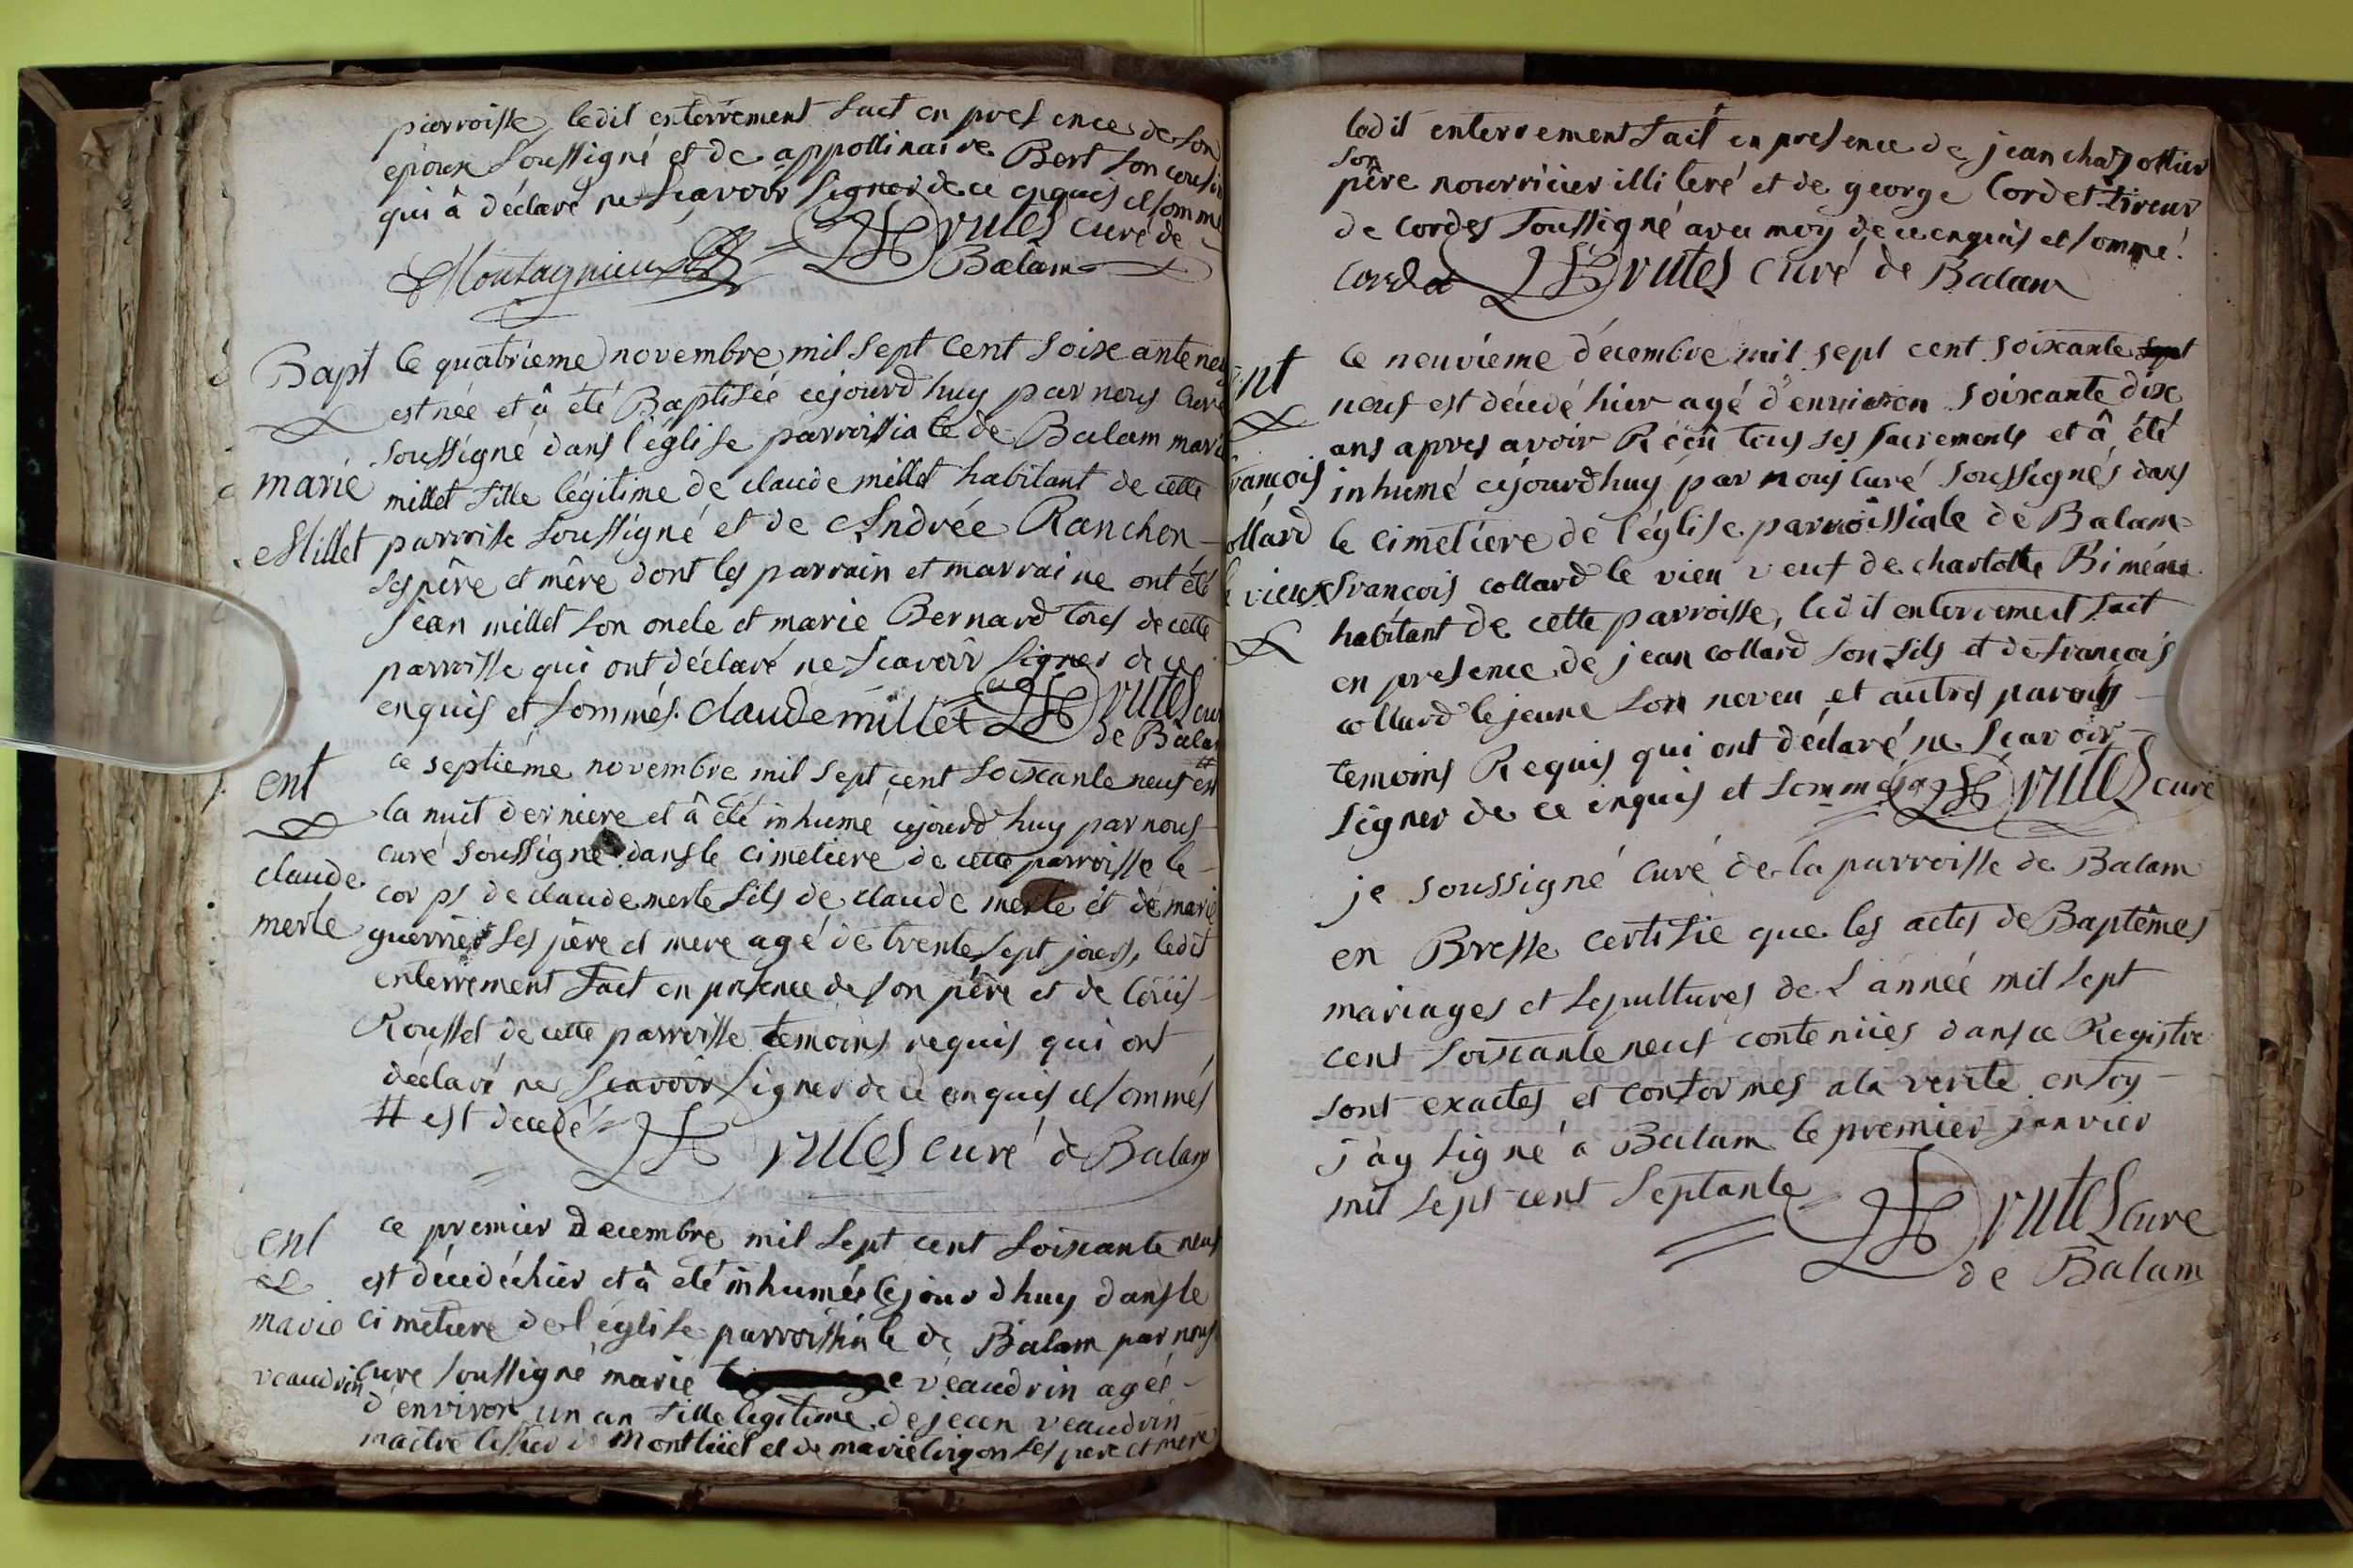 parroisse, ledit enterrement fait en presence de son
epoux soussigné et de appollinaire Bert son cousin
qui â déclaré ne scavoir signer de ce enquis et sommé
Drutel curé de
Montagnieux Balam
Bapt
marie
Millet
Ce quatrieme novembre mil sept cent soixante neuf
est née et â été Baptisée cejourd'huy par nous curé
soussigné dans l'église parroissiale de Balam marie
millet fille légitime de claude millet habitant de cette
parroisse soussigné et de Andrée Ranchon
ses pêre et mêre dont les parrain et marraine ont été
jean millet son oncle et marie Bernard tous de cette
parroisse qui ont déclaré ne scavoir signer de ce
enquis et sommés. claude millet Drutel curé
de Balam
ent
claude
merle
Ce septiéme novembre mil sept cent soixante neuf #
la nuit derniere et â été inhumé cejourd'huy par nous
curé soussigné dans le cimetiere de cette parroisse le
corps de claude merle fils de claude merle et de marie
guerrier ses pêre et mere agé de trente sept jours, ledit
enterrement fait en presence de son pêre et de Loüis
Roussel de cette parroisse temoins requis qui ont
déclaré ne scavoir signer de ce enquis et sommés
# est decedé
Drutel curé de Balam
ent
marie
veaudrin
Ce premier Decembre mil sept cent soixante neuf
est décedée hier et â été inhumée cejourd'huy dans le
cimetiere de l'église parroissiale de Balam par nous
curé soussigné marie veaudrin agée
d'environ un an fille légitime de jean veaudrin
maitre de Montlüel et de marie ses pere et mere
ledit enterrement fait en presence de jean chapottier
son
pêre nourricier illiteré et de george Cordet tireur
de cordes soussigné avec moy de ce enquis et sommé.
Cordet Drutel curé de Balam
ent
françois
collard
le vieux
Ce neuvieme décembre mil sept cent soixante sept
neuf est décédé hier agé d'environ soixante dix
ans apres avoir Recû tous ses sacrements et â été
inhumé cejourdhuy par nous curé soussignés dans
le cimetiére de l'église parroissiale de Balam
françois collard le vieu veuf de charlotte
habitant de cette parroisse, ledit enterrement fait
en presence de jean collard son fils et de françois
collard le jeune son neveu et autres parents
temoins Requis qui ont déclaré ne scavoir
signer de ce enquis et sommés Drutel curé
je soussigné curé de la parroisse de Balam
en Bresse certifie que les actes de Baptêmes
mariages et sepultures de L'année mil sept
cent soixante neuf contenües dans ce Registre
sont exactes et conformes a la verité en foy
j'ay signé a Balam le premier janvier
mil sept cent septante
Drutel curé
de Balam